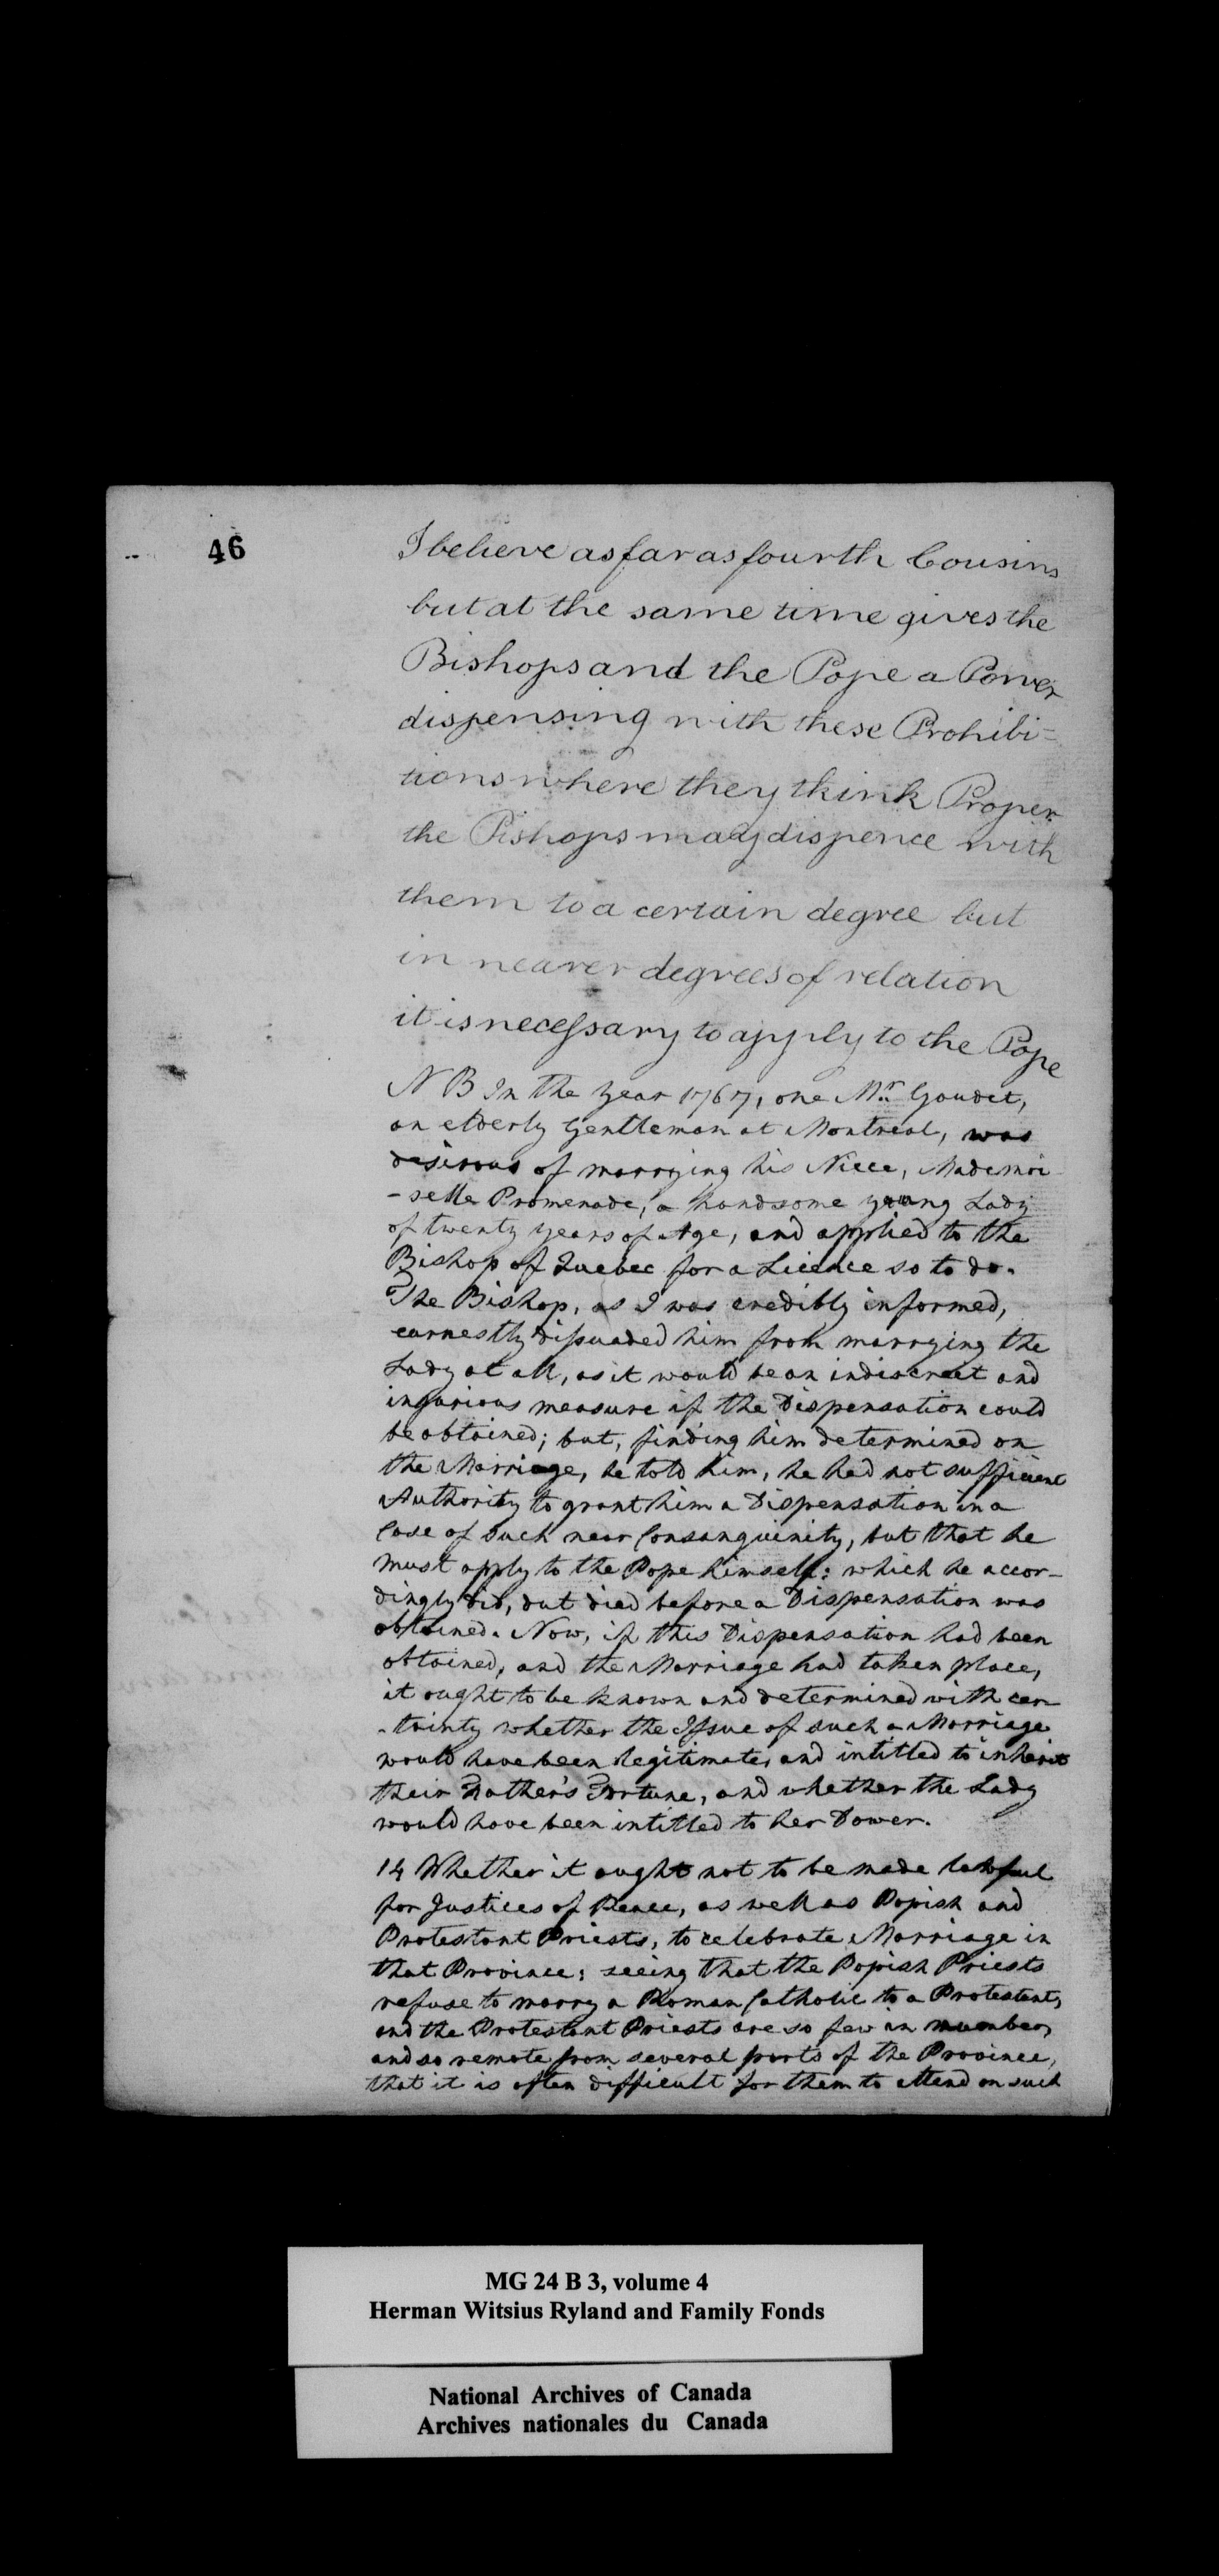 46
I believe as far as fourth Cousins
but at the same time gives the
Bishops and the Pope a Power
dispensing with these Prohibi=
tions where they think Proper
the Bishops may dispence with
them to a certain degree but
in nearer degrees of relation
it is necessary to apply to the Pope
N B In the year 1767, one Mr. Goudet,
an elderly Gentleman at Montreal, was
desirous of marrying his Niece, Mademoi
-selle Promenade, a handsome young Lady
of twenty years of Age, and applied to the
Bishop of Quebec for a Licence so to do.
The Bishop, as I was credibly informed,
earnestly dissuaded him from marrying the
Lady at all, as it would be an indiscreet and
injurious measure if the Dispensation could
be obtained; but, finding him determined on
the Marriage, he told him, he had not sufficient
Authority to grant him a Dispensation in a
Case of such near Consanguinity, but that he
must apply to the Pope himself: which he accor-
dingly did, but died before a Dispensation was
obtained. Now, if this Dispensation had been
obtained, and the Marriage had taken place,
it ought to be known and determined with cer
-tainty whether the Issue of such a Marriage
would have been legitimate, and intitled to inherit
their Father's Fortune, and whether the Lady
would have been intitled to her Dower.
14 Whether it ought not to be made lawful
for Justices of Peace, as well as Popish and
Protestant Priests, to celebrate Marriage in
that Province; seeing that the Popish Priests
refuse to marry a Roman Catholic to a Protestant,
and the Protestant Priests are so few in number,
and so remote from several parts of the Province,
that it is often difficult for them to attend on such
MG 24 B 3, volume 4
Herman Witsius Ryland and Family Fonds
National Archives of Canada
Archives nationales du Canada